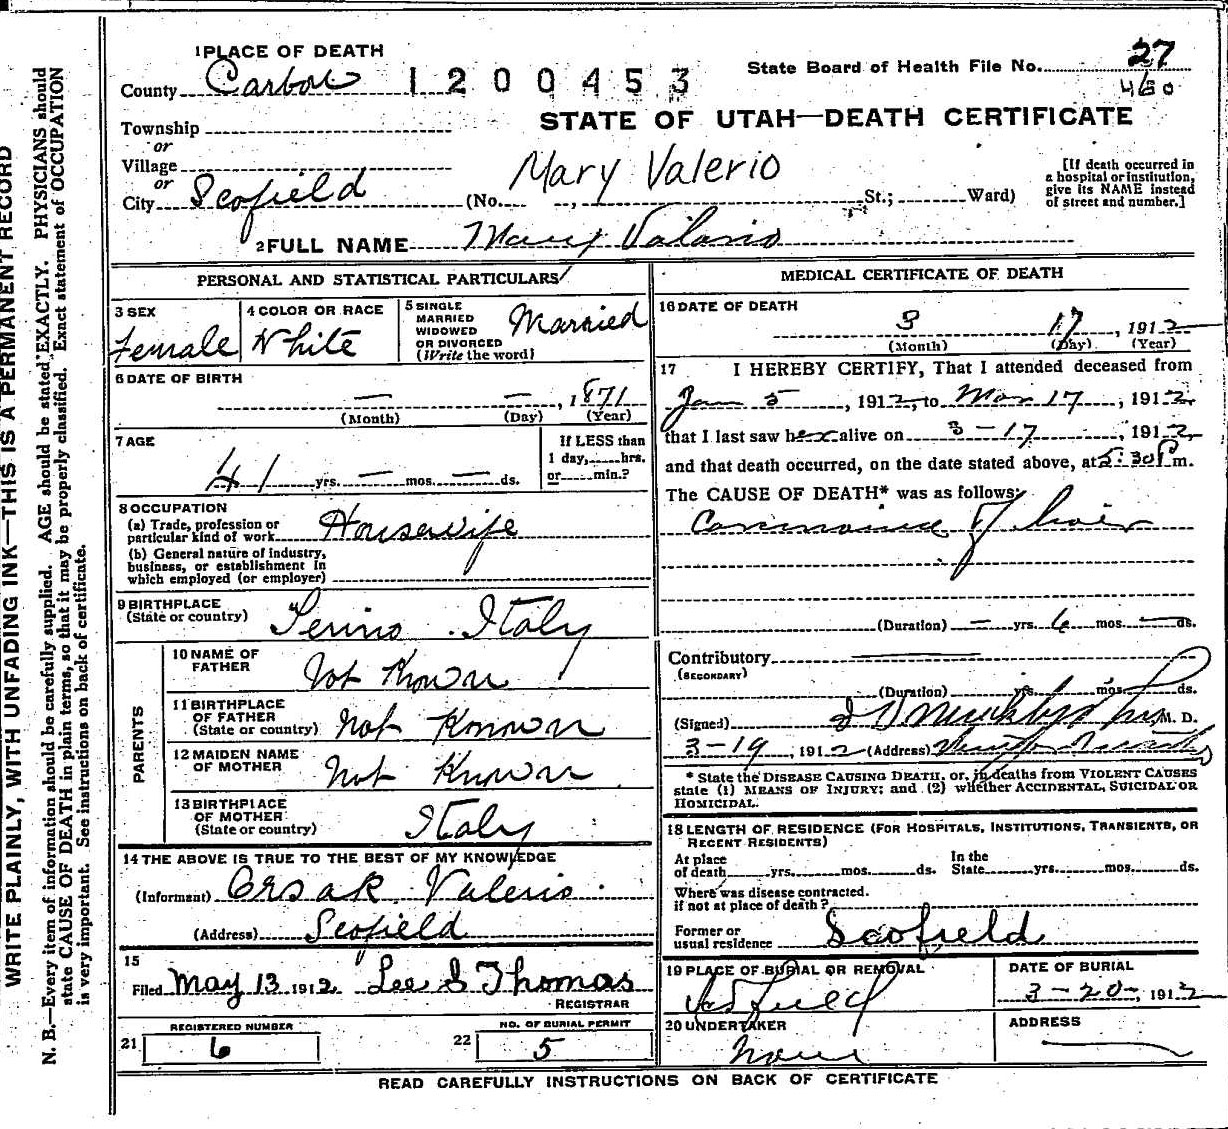 1 PLACE OF DEATH
County Carbon 1200453 State Board of Health File No. 27
460
STATE OF UTAH—DEATH CERTIFICATE
Township
or
Village
or
City Scofield (No. , St.; Ward)
Mary Valerio
[If death occurred in
a hospital or institution,
give its NAME instead
of street and number.]
2 FULL NAME Mary Valario
PERSONAL AND STATISTICAL PARTICULARS
3 SEX
Female
4 COLOR OR RACE
White
5 SINGLE
MARRIED
WIDOWED
OR DIVORCED
(Write the word)
Married
6 DATE OF BIRTH
— — , 1871
(Month) (Day) (Year)
7 AGE
41 yrs. — mos. — ds.
If LESS than
1 day, hrs.
or min.?
8 OCCUPATION
(a) Trade, profession or
particular kind of work Housewife
(b) General nature of industry,
business, or establishment in
which employed (or employer)
9 BIRTHPLACE
(State or country) Italy
PARENTS
10 NAME OF
FATHER
Not Known
11 BIRTHPLACE
OF FATHER
(State or country) Not Known
12 MAIDEN NAME
OF MOTHER
Not Known
13 BIRTHPLACE
OF MOTHER
(State or country) Italy
14 THE ABOVE IS TRUE TO THE BEST OF MY KNOWLEDGE
(Informant) Valerio
(Address) Scofield
15
Filed May 13 1912 Lee S Thomas
REGISTRAR
REGISTERED NUMBER
21 6
NO. OF BURIAL PERMIT
22 5
MEDICAL CERTIFICATE OF DEATH
16 DATE OF DEATH
3 17 , 1912
(Month) (Day) (Year)
17 I HEREBY CERTIFY, That I attended deceased from
Jan 5 , 1912, to Mar 17 , 1912
that I last saw her alive on 3-17 , 1912
and that death occurred, on the date stated above, at 5:30 P m.
The CAUSE OF DEATH* was as follows:
Carcinoma of
(Duration) — yrs. 6 mos. — ds.
Contributory
(SECONDARY)
(Duration) yrs. mos. ds.
(Signed) M. D.
3-19 , 1912 (Address)
* State the DISEASE CAUSING DEATH, or, in deaths from VIOLENT CAUSES
state (1) MEANS OF INJURY; and (2) whether ACCIDENTAL, SUICIDAL OR
HOMICIDAL.
18 LENGTH OF RESIDENCE (FOR HOSPITALS, INSTITUTIONS, TRANSIENTS, OR
RECENT RESIDENTS)
At place
of death yrs. mos. ds.
In the
State yrs. mos. ds.
Where was disease contracted.
if not at place of death?
Former or
usual residence Scofield
19 PLACE OF BURIAL OR REMOVAL
Scofield
DATE OF BURIAL
3-20-, 1912
20 UNDERTAKER
None
ADDRESS
READ CAREFULLY INSTRUCTIONS ON BACK OF CERTIFICATE
WRITE PLAINLY, WITH UNFADING INK—THIS IS A PERMANENT RECORD
N. B.—Every item of information should be carefully supplied. AGE should be stated EXACTLY. PHYSICIANS should
state CAUSE OF DEATH in plain terms, so that it may be properly classified. Exact statement of OCCUPATION
is very important. See instructions on back of certificate.